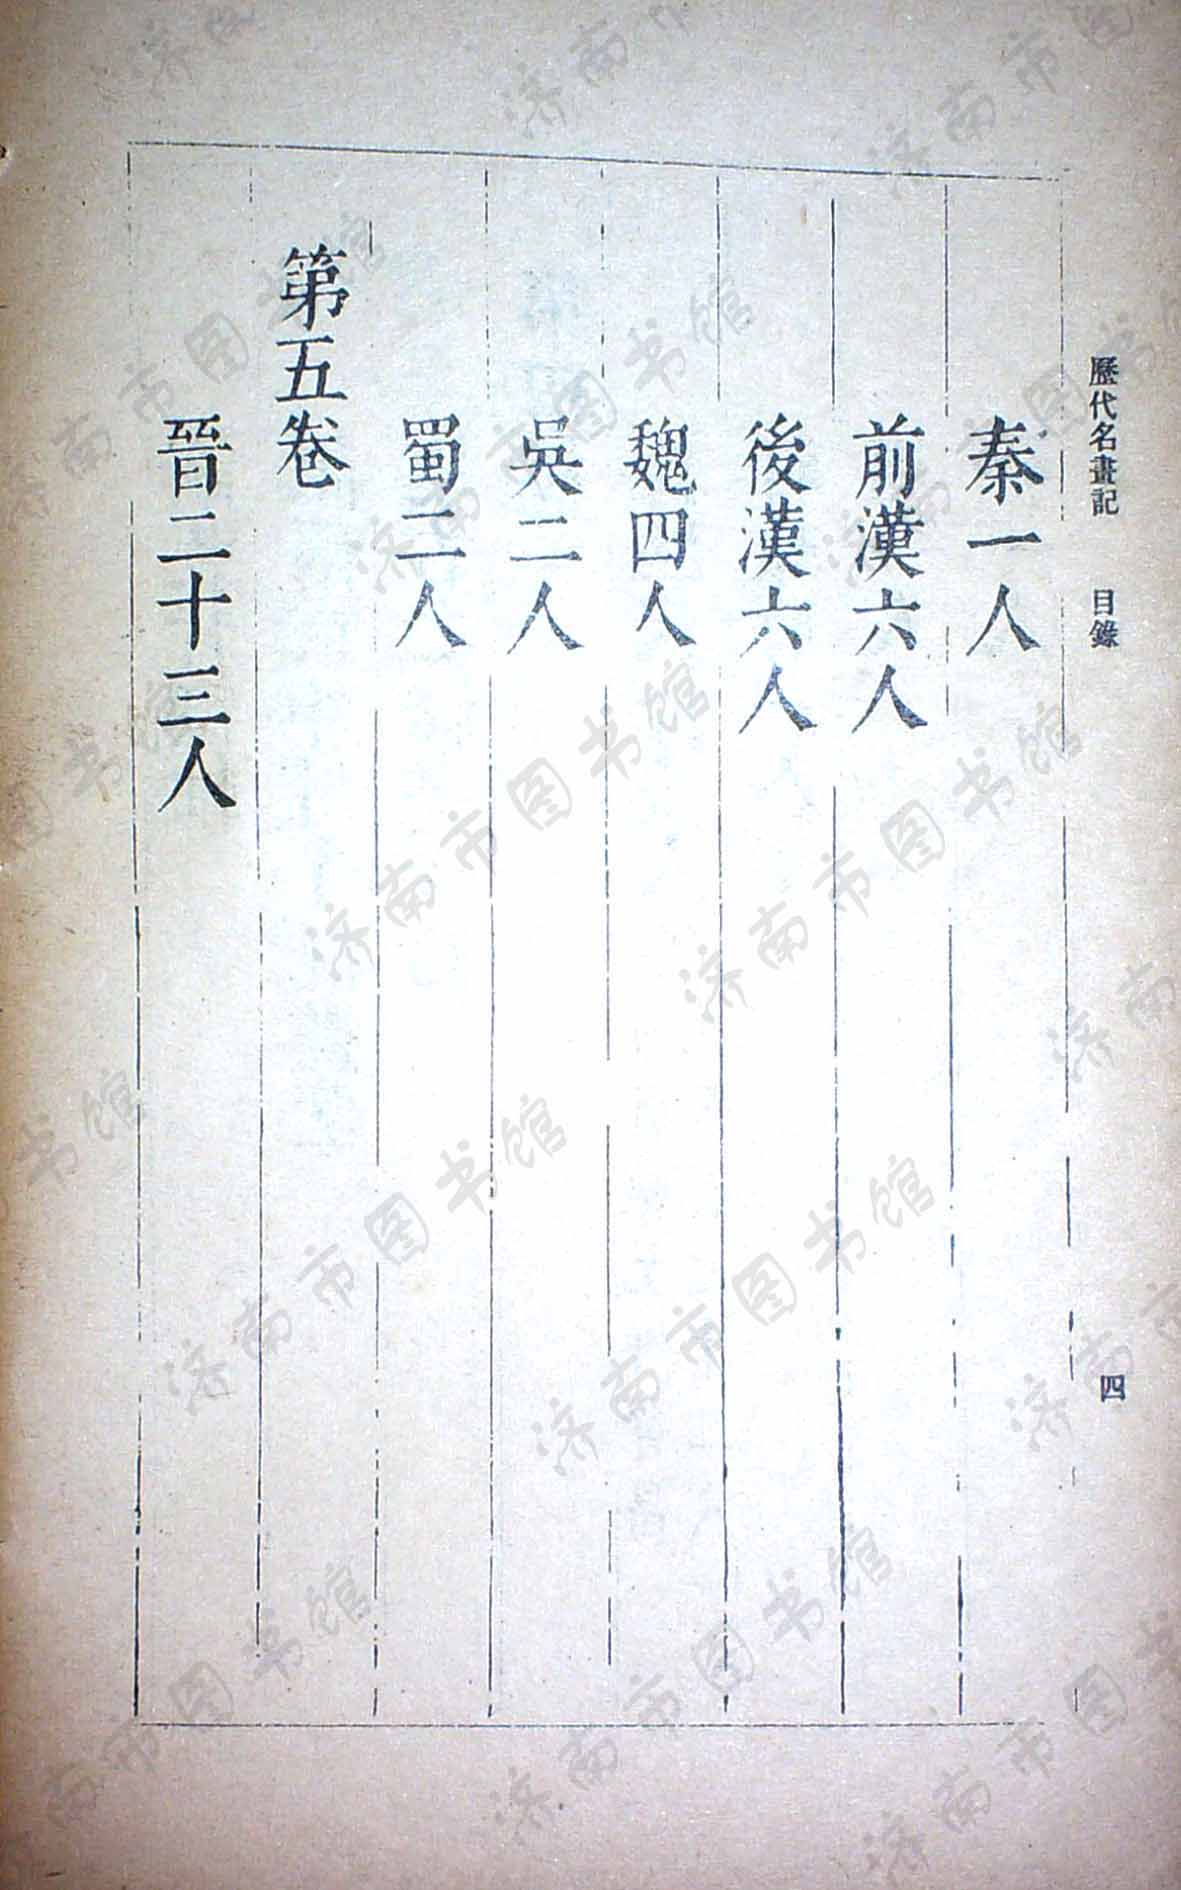 歷代名畫記　目錄　四
秦一人
前漢六人
後漢六人
魏四人
吳二人
蜀二人
第五卷
晉二十三人
济南市图书馆